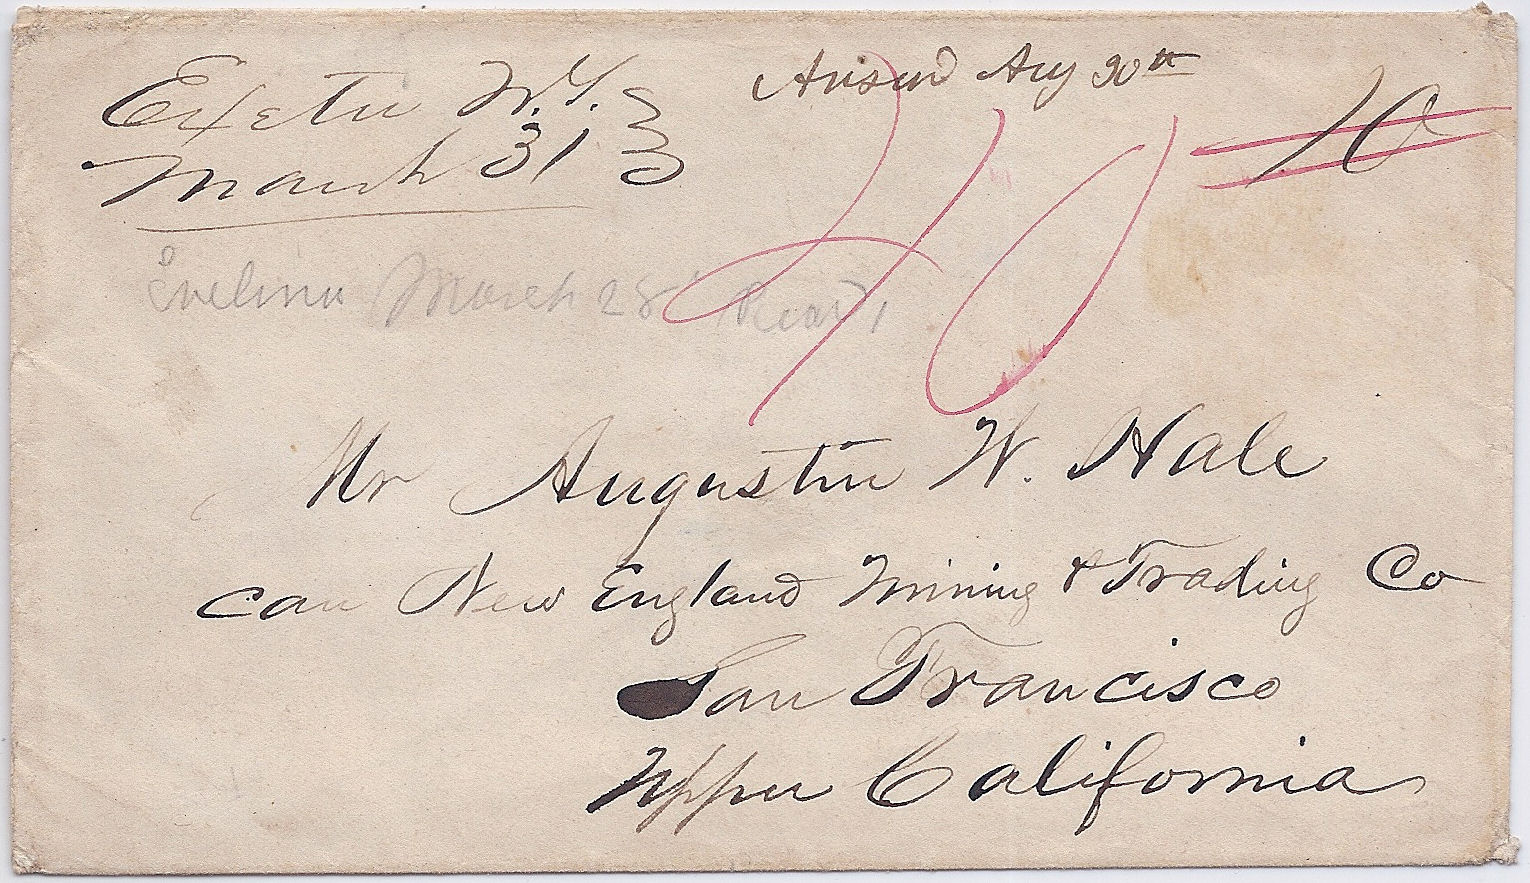 Exeter N.Y.
March 31
Answd Aug 20th
10
40
Evelina March 28
Mr Augustin W. Hale
care New England Mining & Trading Co
San Francisco
Upper California